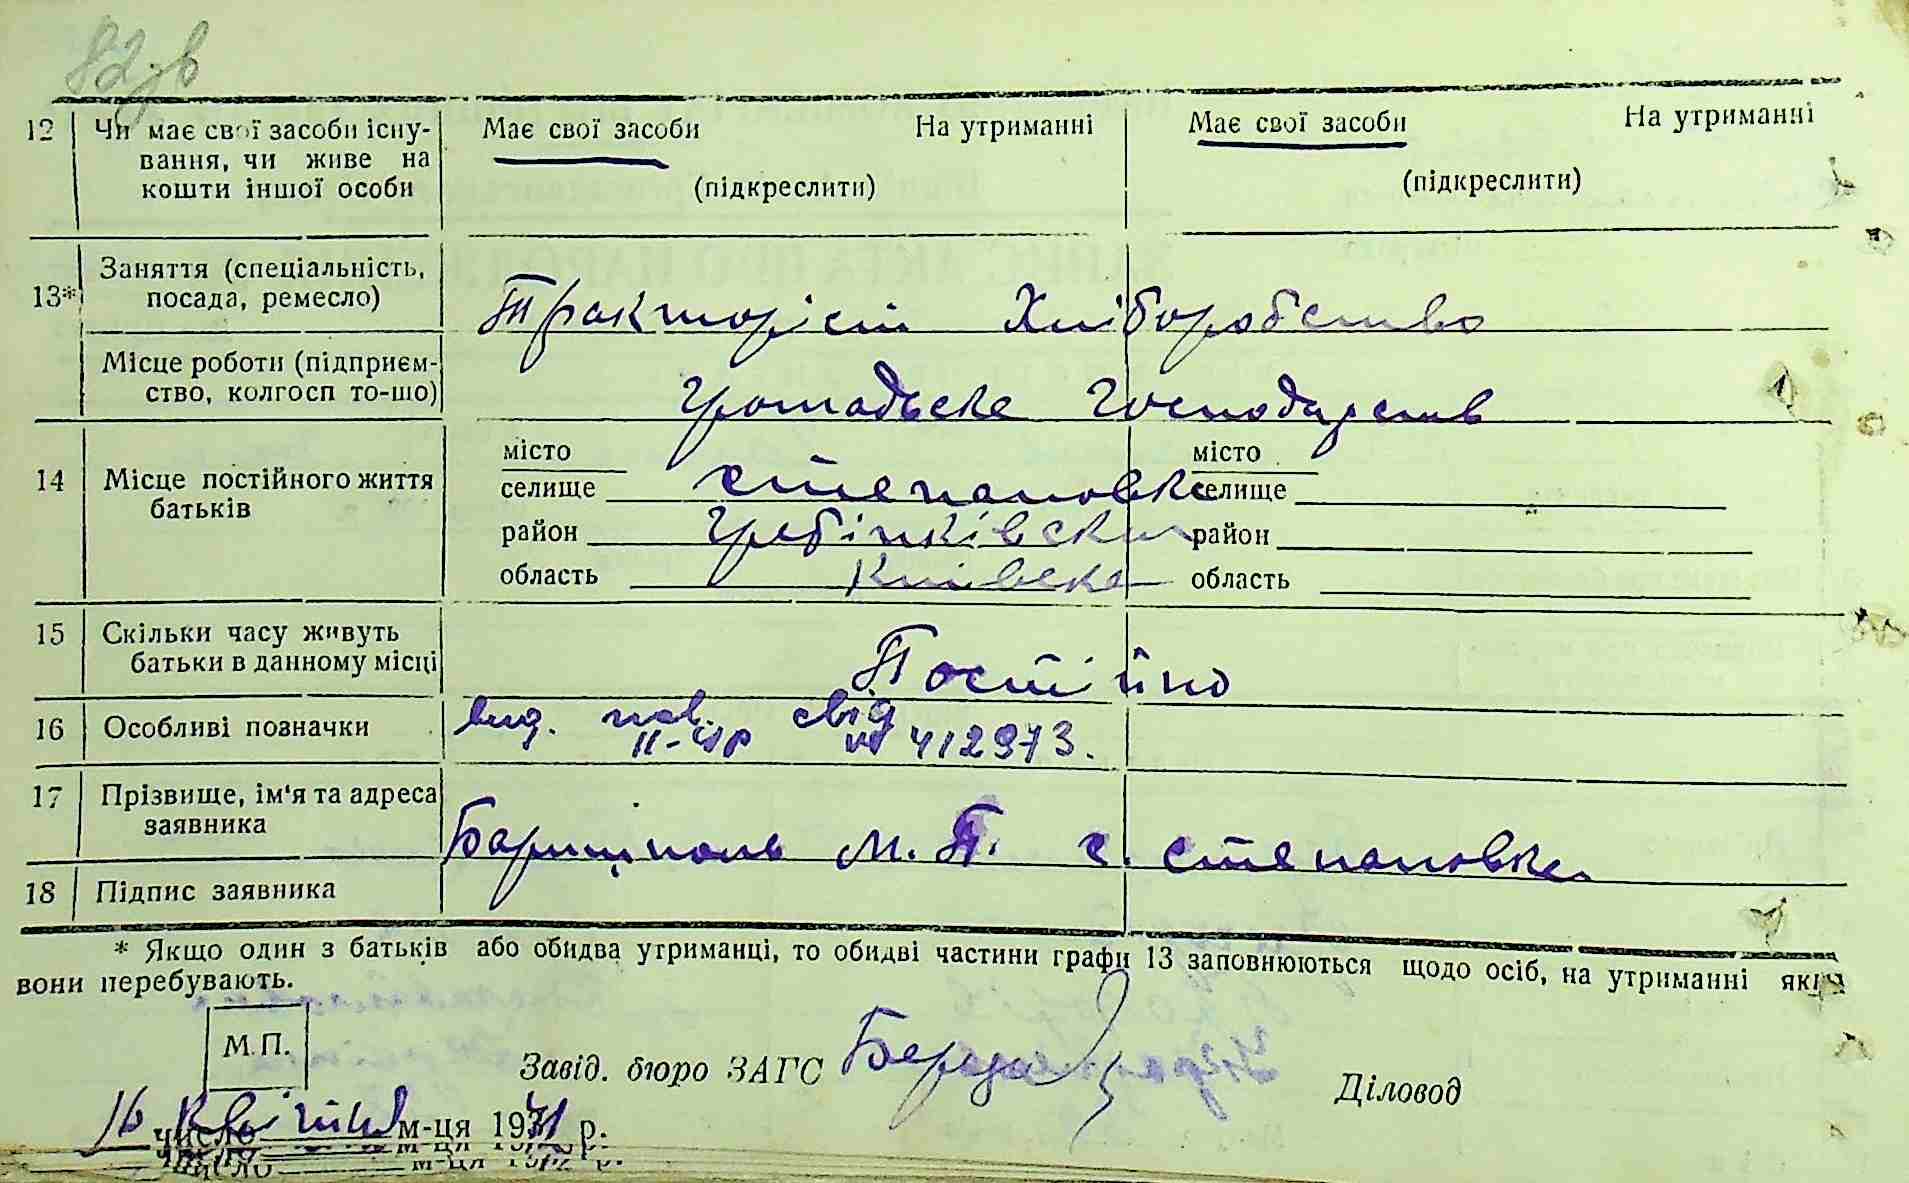 82зв
12 Чи має свої засоби існу- Має свої засоби На утриманні Має свої засоби На утриманні
вання, чи живе на
кошти іншої особи (підкреслити) (підкреслити)
Заняття (спеціальність,
13* посада, ремесло) Тракторіст Хліборобство
Місце роботи (підприєм-
ство, колгосп то-що) Громадське господарств
місто місто
14 Місце постійного життя селище Степановка селище
батьків
район Гребінківски район
область Київска область
15 Скільки часу живуть
батьки в данному місці Постійно
16 Особливі позначки вид. пов. свід
ІІ-УР № 412973.
17 Прізвище, ім'я та адреса
заявника Баришполь М. П. с. Степановка
18 Підпис заявника
* Якщо один з батьків або обидва утриманці, то обидві частини графи 13 заповнюються щодо осіб, на утриманні яких
вони перебувають.
М.П.
Завід. бюро ЗАГС Діловод
16 число квітня м-ця 1941 р.
число м-ця р.